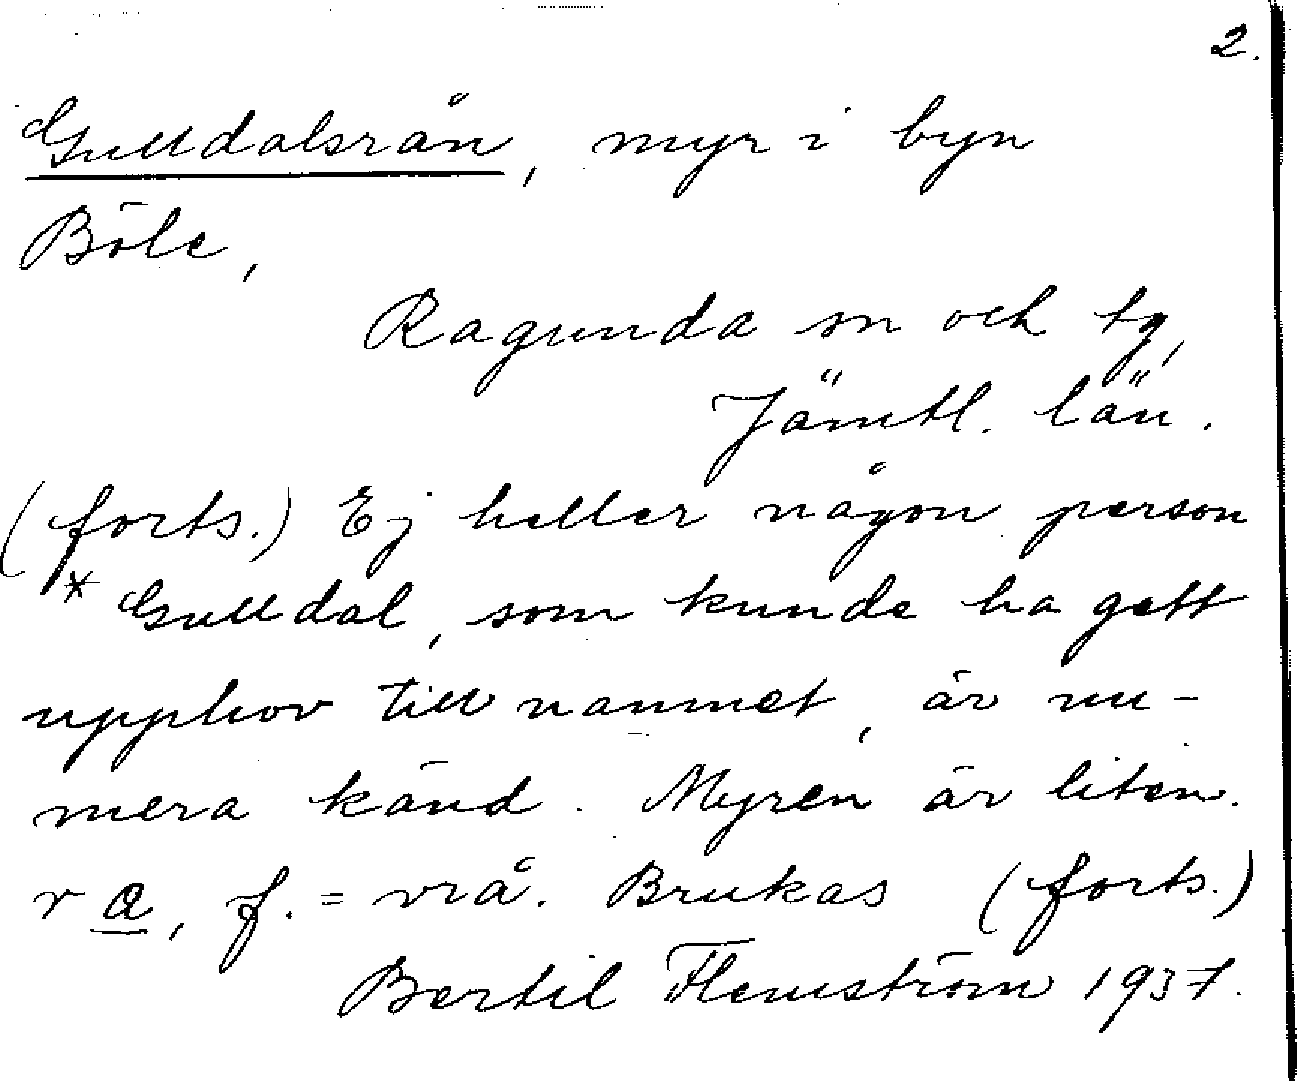 2.
Gulldalsrån, myr i byn
Böle,
Ragunda sn och tg,
Jämtl. län.
(forts.) Ej heller någon person
* Gulldal, som kunde ha gett
upphov till namnet, är nu-
mera känd. Myren är liten.
r a, f. = vrå. Brukas (forts.)
Bertil Flemström 1937.